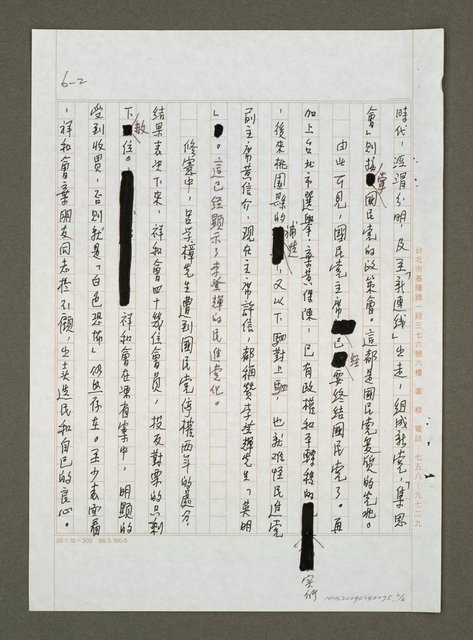 6-2
時代，涇渭分明，及至「新連線」出走，組成新黨，「集思
會」則掌國民黨的政策會。這都是國民黨變質的先兆。
由此可見，國民黨主席已經要終結國民黨了。再
加上台北市選舉，棄黃保陳，已有政權和平轉移的實例
，後來桃園縣的補選，又以下駟對上駟，也就難怪民進黨
前主席黃信介，現任主席許信，都稱贊李登輝先生「英明
」。這已經顯示了李登輝的民進黨化。
修憲中，呂學樟先生遭到國民黨停權兩年的處分，
結果表決下來，祥和會四十幾位會員，投反對票的只剩
下敏位。祥和會在案有案中，明顯的
受到收買，否則就是「白色恐怖」仍然存在。至少表面看
，祥和會棄朋友同志於不顧，出賣選民和自己的良心。
台北市基隆路一段三七六號六樓 姜穆 電話：七五八九七二九
25×10=300 86.5.100本
nmtl20090240275 2/6